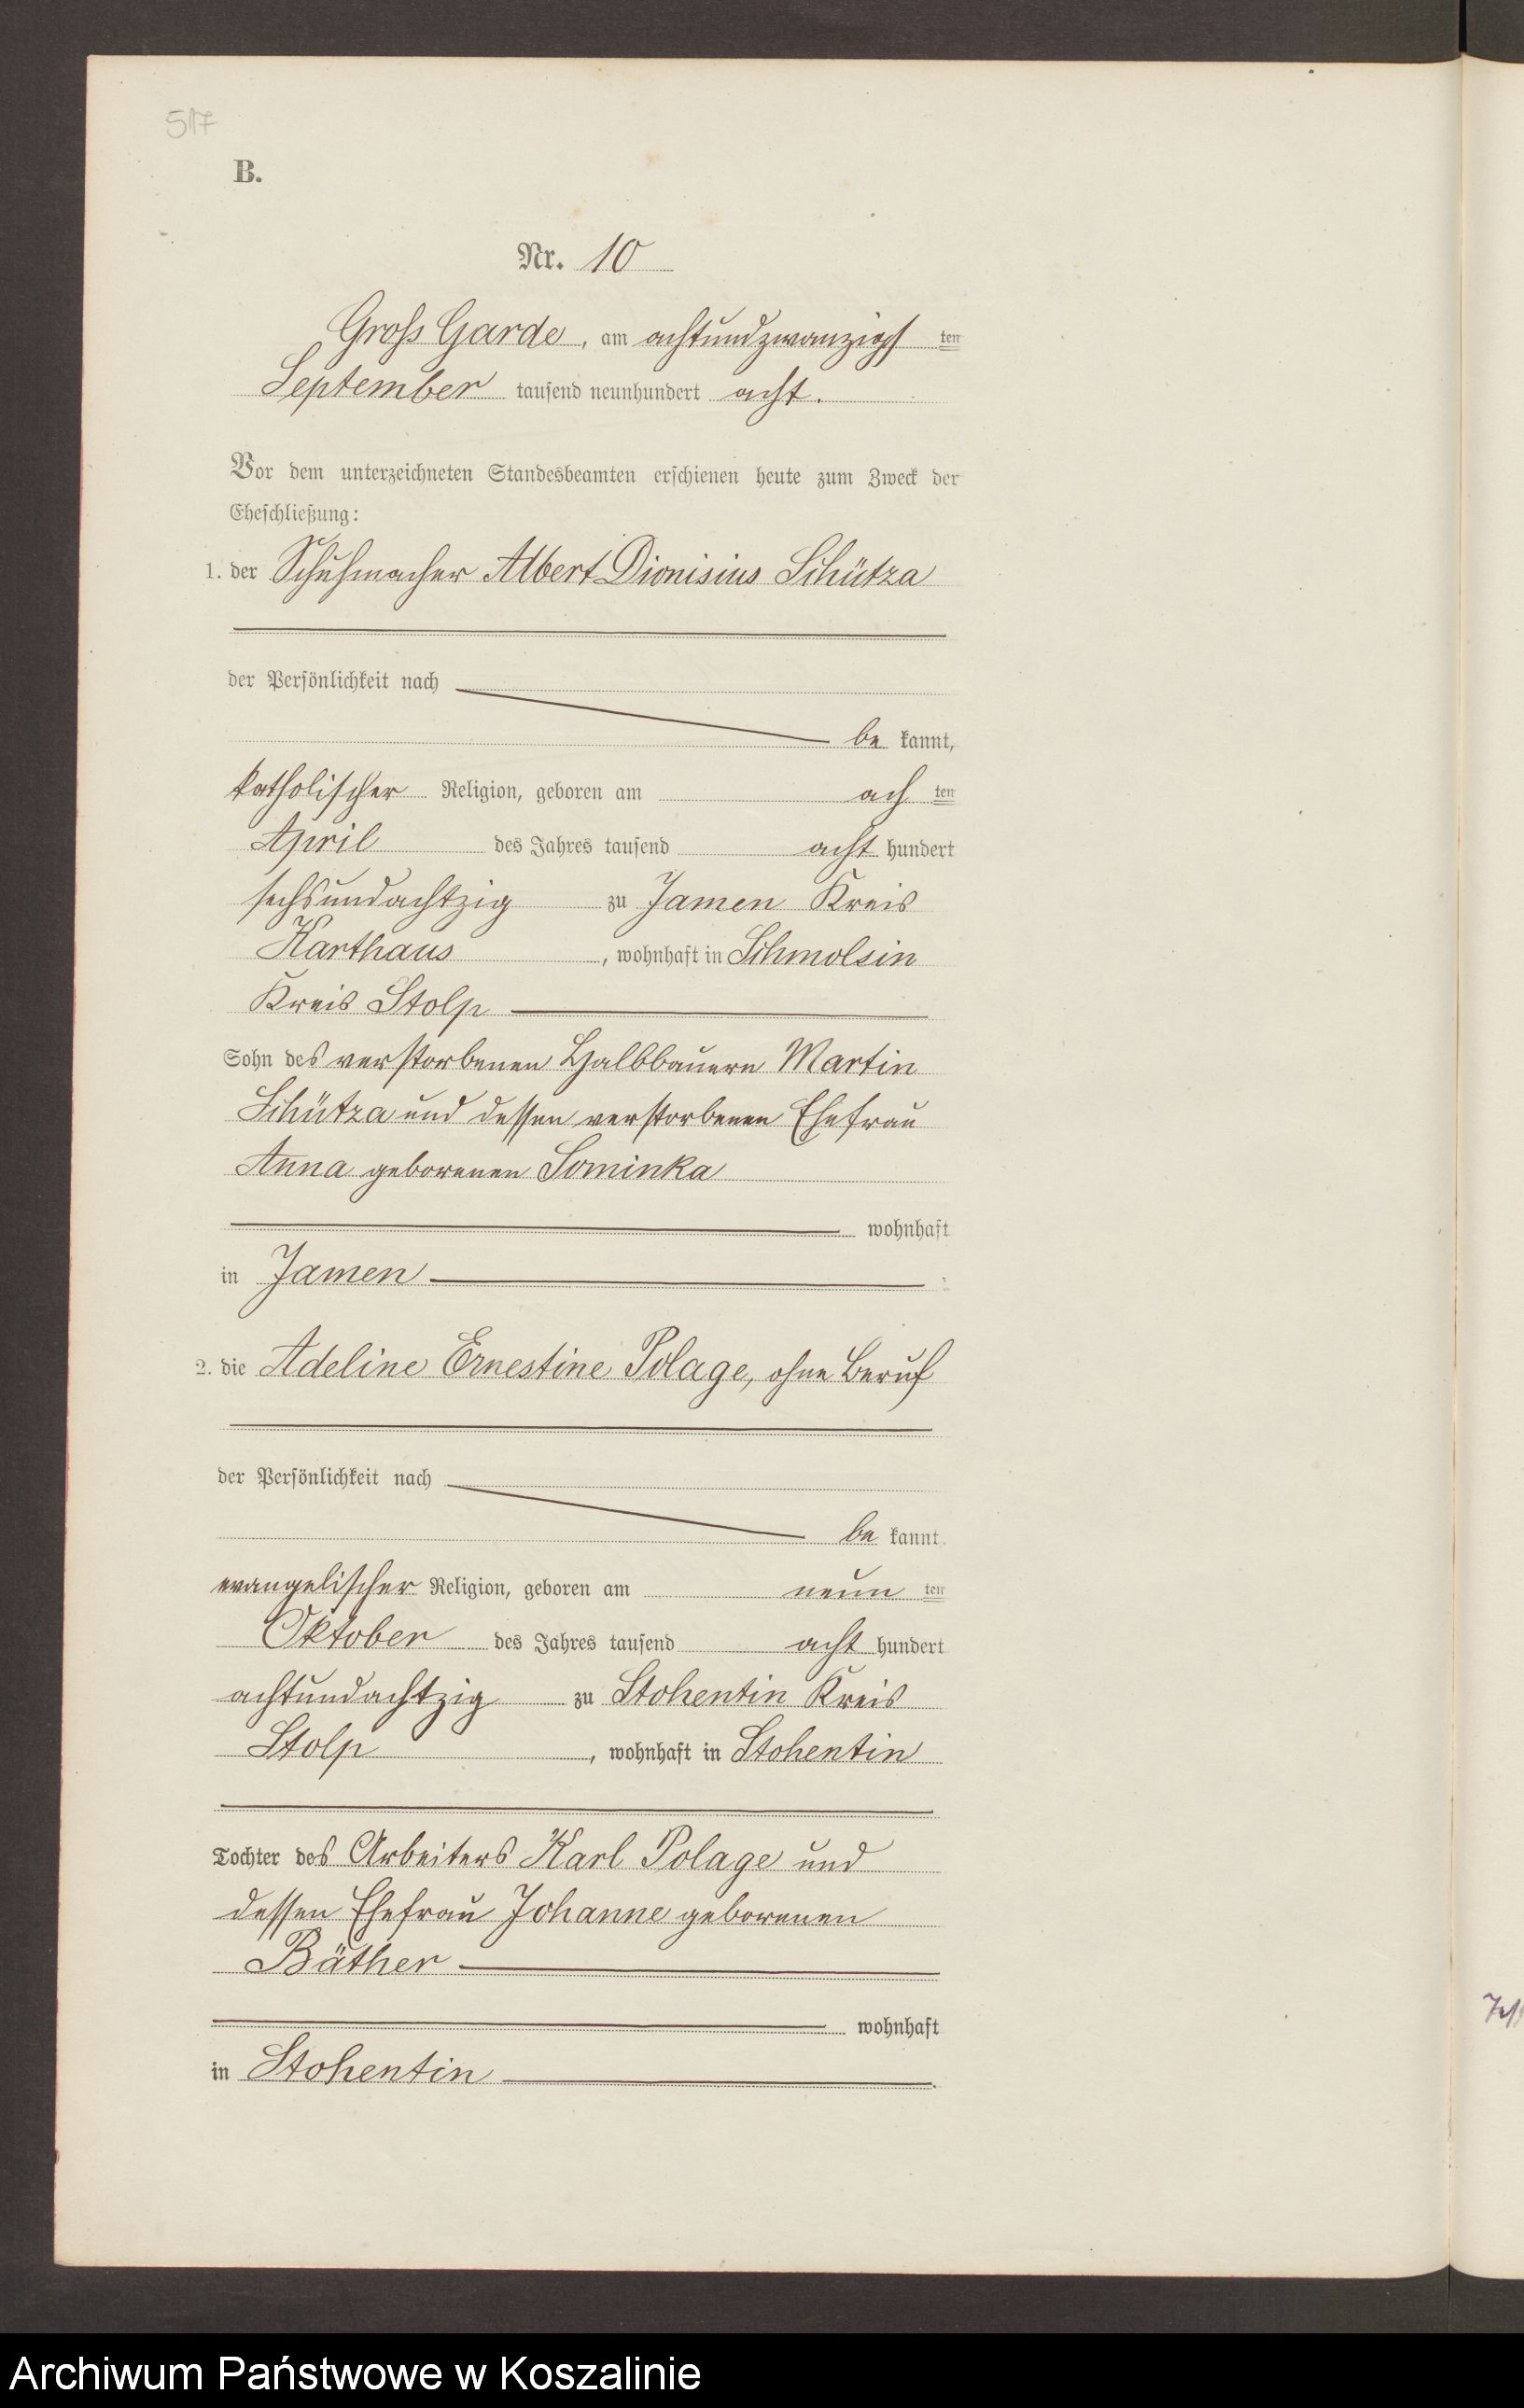 517
B.
Nr. 10
Gross Garde, am achtundzwanzigs ten
September tausend neunhundert acht.
Vor dem unterzeichneten Standesbeamten erschienen heute zum Zweck der
Eheschließung:
1. der Schuhmacher Albert Dionisius Schütza
der Persönlichkeit nach
be kannt,
katholischer Religion, geboren am ach ten
April des Jahres tausend acht hundert
sechsundachtzig zu Jamen Kreis
Karthaus , wohnhaft in Schmolsin
Kreis Stolp
Sohn des verstorbenen Halbbauern Martin
Schütza und dessen verstorbenen Ehefrau
Anna geborenen Sominka
wohnhaft
in Jamen
2. die Adeline Ernestine Polage, ohne Beruf
der Persönlichkeit nach
be kannt,
evangelischer Religion, geboren am neun ten
Oktober des Jahres tausend acht hundert
achtundachtzig zu Stohentin Kreis
Stolp , wohnhaft in Stohentin
Tochter des Arbeiters Karl Polage und
dessen Ehefrau Johanne geborenen
Bäther
wohnhaft
in Stohentin .
Archiwum Państwowe w Koszalinie